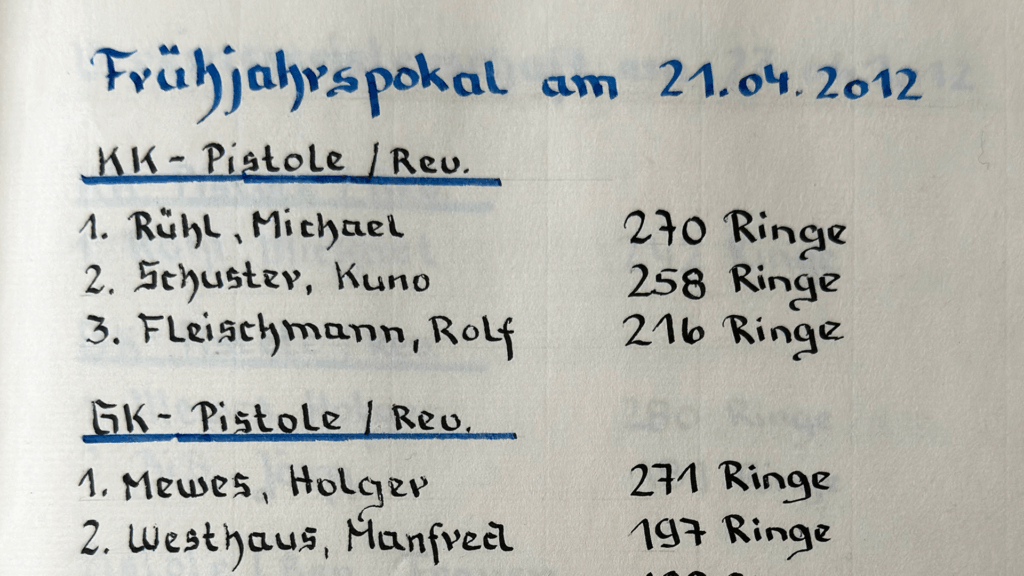 Frühjahrspokal am 21.04.2012
KK- Pistole / Rev.
1. Rühl, Michael 270 Ringe
2. Schuster, Kuno 258 Ringe
3. Fleischmann, Rolf 216 Ringe
GK- Pistole / Rev.
1. Mewes, Holger 271 Ringe
2. Westhaus, Manfred 197 Ringe